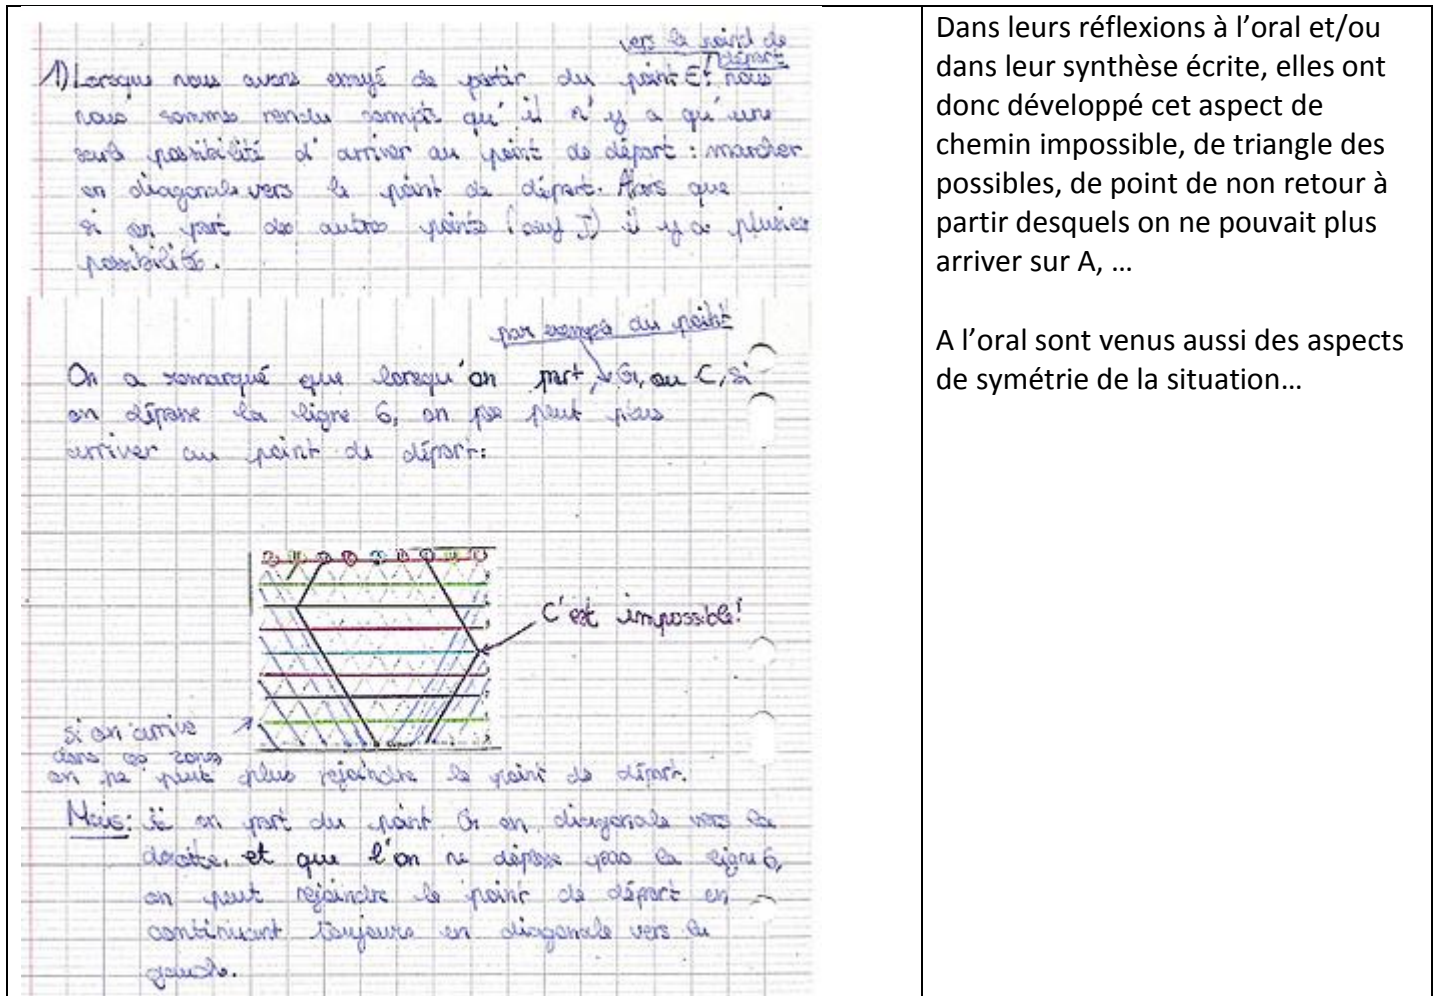 vers le point de
départ
1) Lorsque nous avons essayé de partir du point E: nous
nous sommes rendu compte qu'il n'y a qu'une
seule possibilité d'arriver au point de départ : marcher
en diagonale vers le point de départ. Alors que
si on part des autres points (sauf I) il y a plusier
possibilité.
par exemple du point
On a remarqué que lorsqu'on part, G, ou C, si
on dépasse la ligne 6, on ne peut plus
arriver au point de départ:
C'est impossible!
si on arrive
dans ces zones
on ne peut plus rejoindre le point de départ.
Mais: si on part du point G en diagonale vers la
droite, et que l'on ne dépasse pas la ligne 6,
on peut rejoindre le point de départ en
continuant toujours en diagonale vers la
gauche.
Dans leurs réflexions à l'oral et/ou
dans leur synthèse écrite, elles ont
donc développé cet aspect de
chemin impossible, de triangle des
possibles, de point de non retour à
partir desquels on ne pouvait plus
arriver sur A, …
A l'oral sont venus aussi des aspects
de symétrie de la situation…